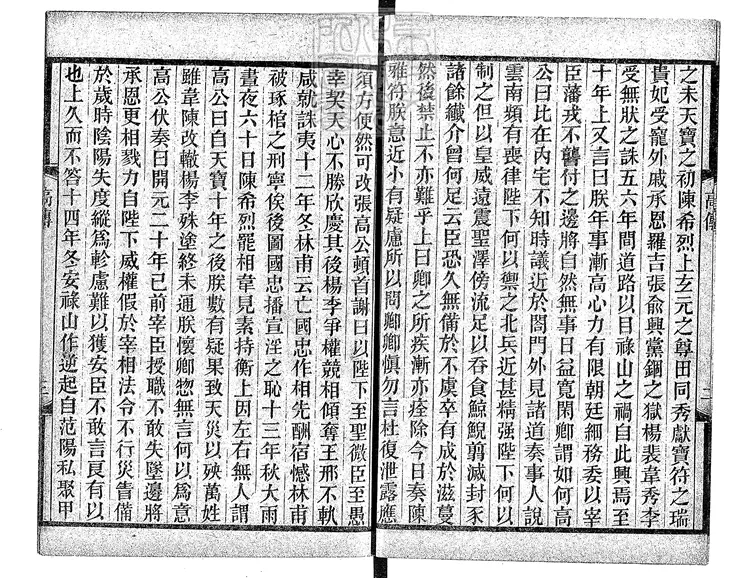 之未天寶之初陳希烈上玄元之尊田同秀獻寶符之瑞
貴妃受寵外戚承恩羅吉張兪興黨錮之獄楊裴韋秀李
受無狀之誅五六年間道路以目祿山之禍自此興焉至
十年上又言曰朕年事漸高心力有限朝廷細務委以宰
臣藩戎不龔付之邊將自然無事日益寬閑卿謂如何高
公曰比在內宅不知時議近於閤門外見諸道奏事人說
雲南頻有喪律陛下何以禦之北兵近甚精强陛下何以
制之但以皇威遠震聖澤傍流足以吞食鯨鯢翦滅封豕
諸餘纖介曾何足云臣恐久無備於不虞卒有成於滋蔓
然後禁止不亦難乎上曰卿之所疾漸亦痊除今日奏陳
雅符朕意近小有疑慮所以問卿卿愼勿言杜復泄露應
須方便然可改張高公頓首謝曰以陛下至聖微臣至愚
幸契天心不勝欣慶其後楊李爭權競相傾奪王邢不軌
咸就誅夷十二年冬林甫云亡國忠作相先酬宿憾林甫
被琢棺之刑寧俟後圖國忠播宣淫之恥十三年秋大雨
晝夜六十日陳希烈罷相韋見素持衡上因左右無人謂
高公曰自天寶十年之後朕數有疑果致天災以殃萬姓
雖韋陳改轍楊李殊塗終未通朕懷卿惣無言何以爲意
高公伏奏曰開元二十年已前宰臣授職不敢失墜邊將
承恩更相戮力自陛下威權假於宰相法令不行災眚備
於歲時陰陽失度縱爲軫慮難以獲安臣不敢言良有以
也上久而不答十四年冬安祿山作逆起自范陽私聚甲
高傳
二
高傳
二